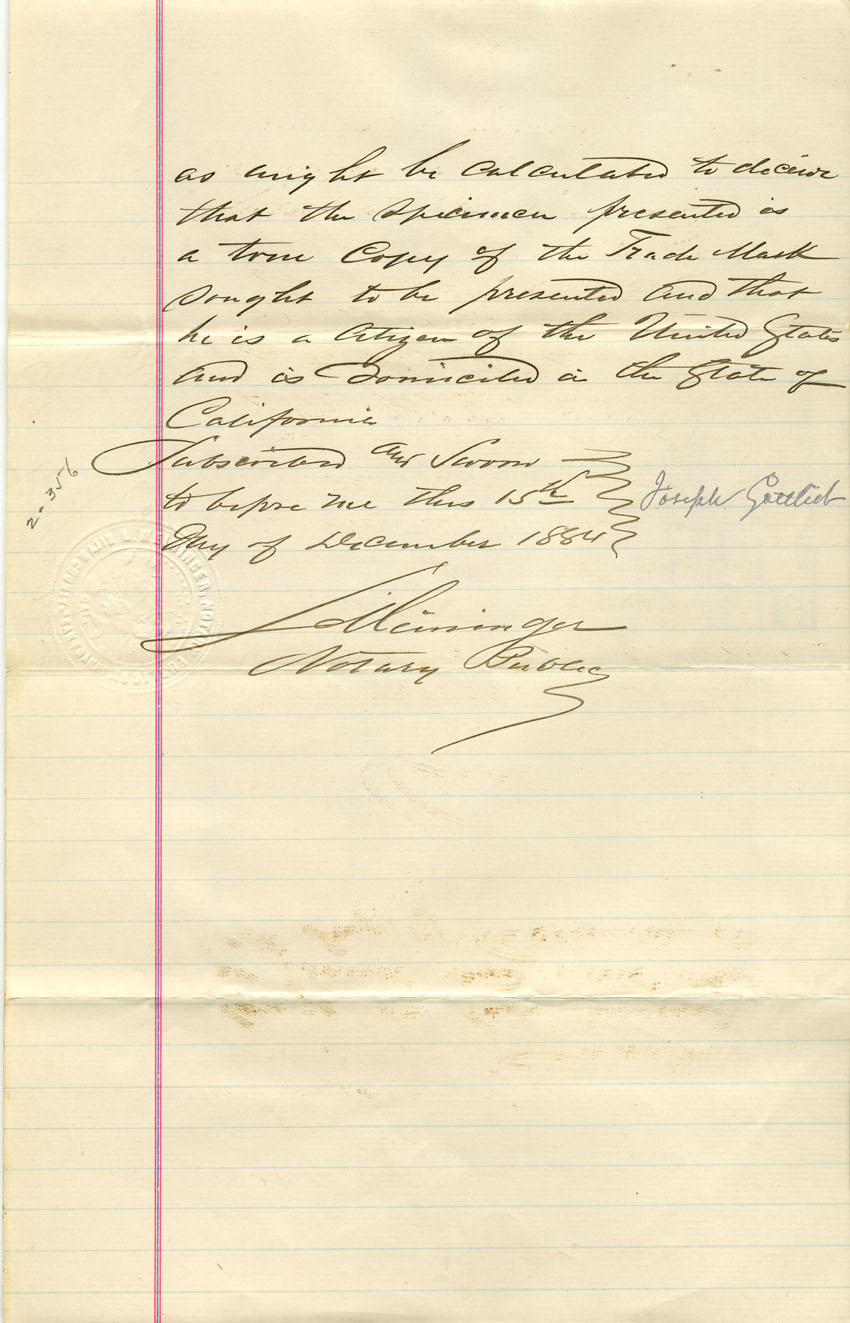 as might be calculated to deceive
that the specimen presented is
a true Copy of the Trade Mark
sought to be presented and that
he is a citizen of the United States
and is domiciled in the State of
California
Subscribed and Sworn
to before me this 15th
Day of December 1884
Joseph Gottlieb
2-356
Meininger
Notary Public